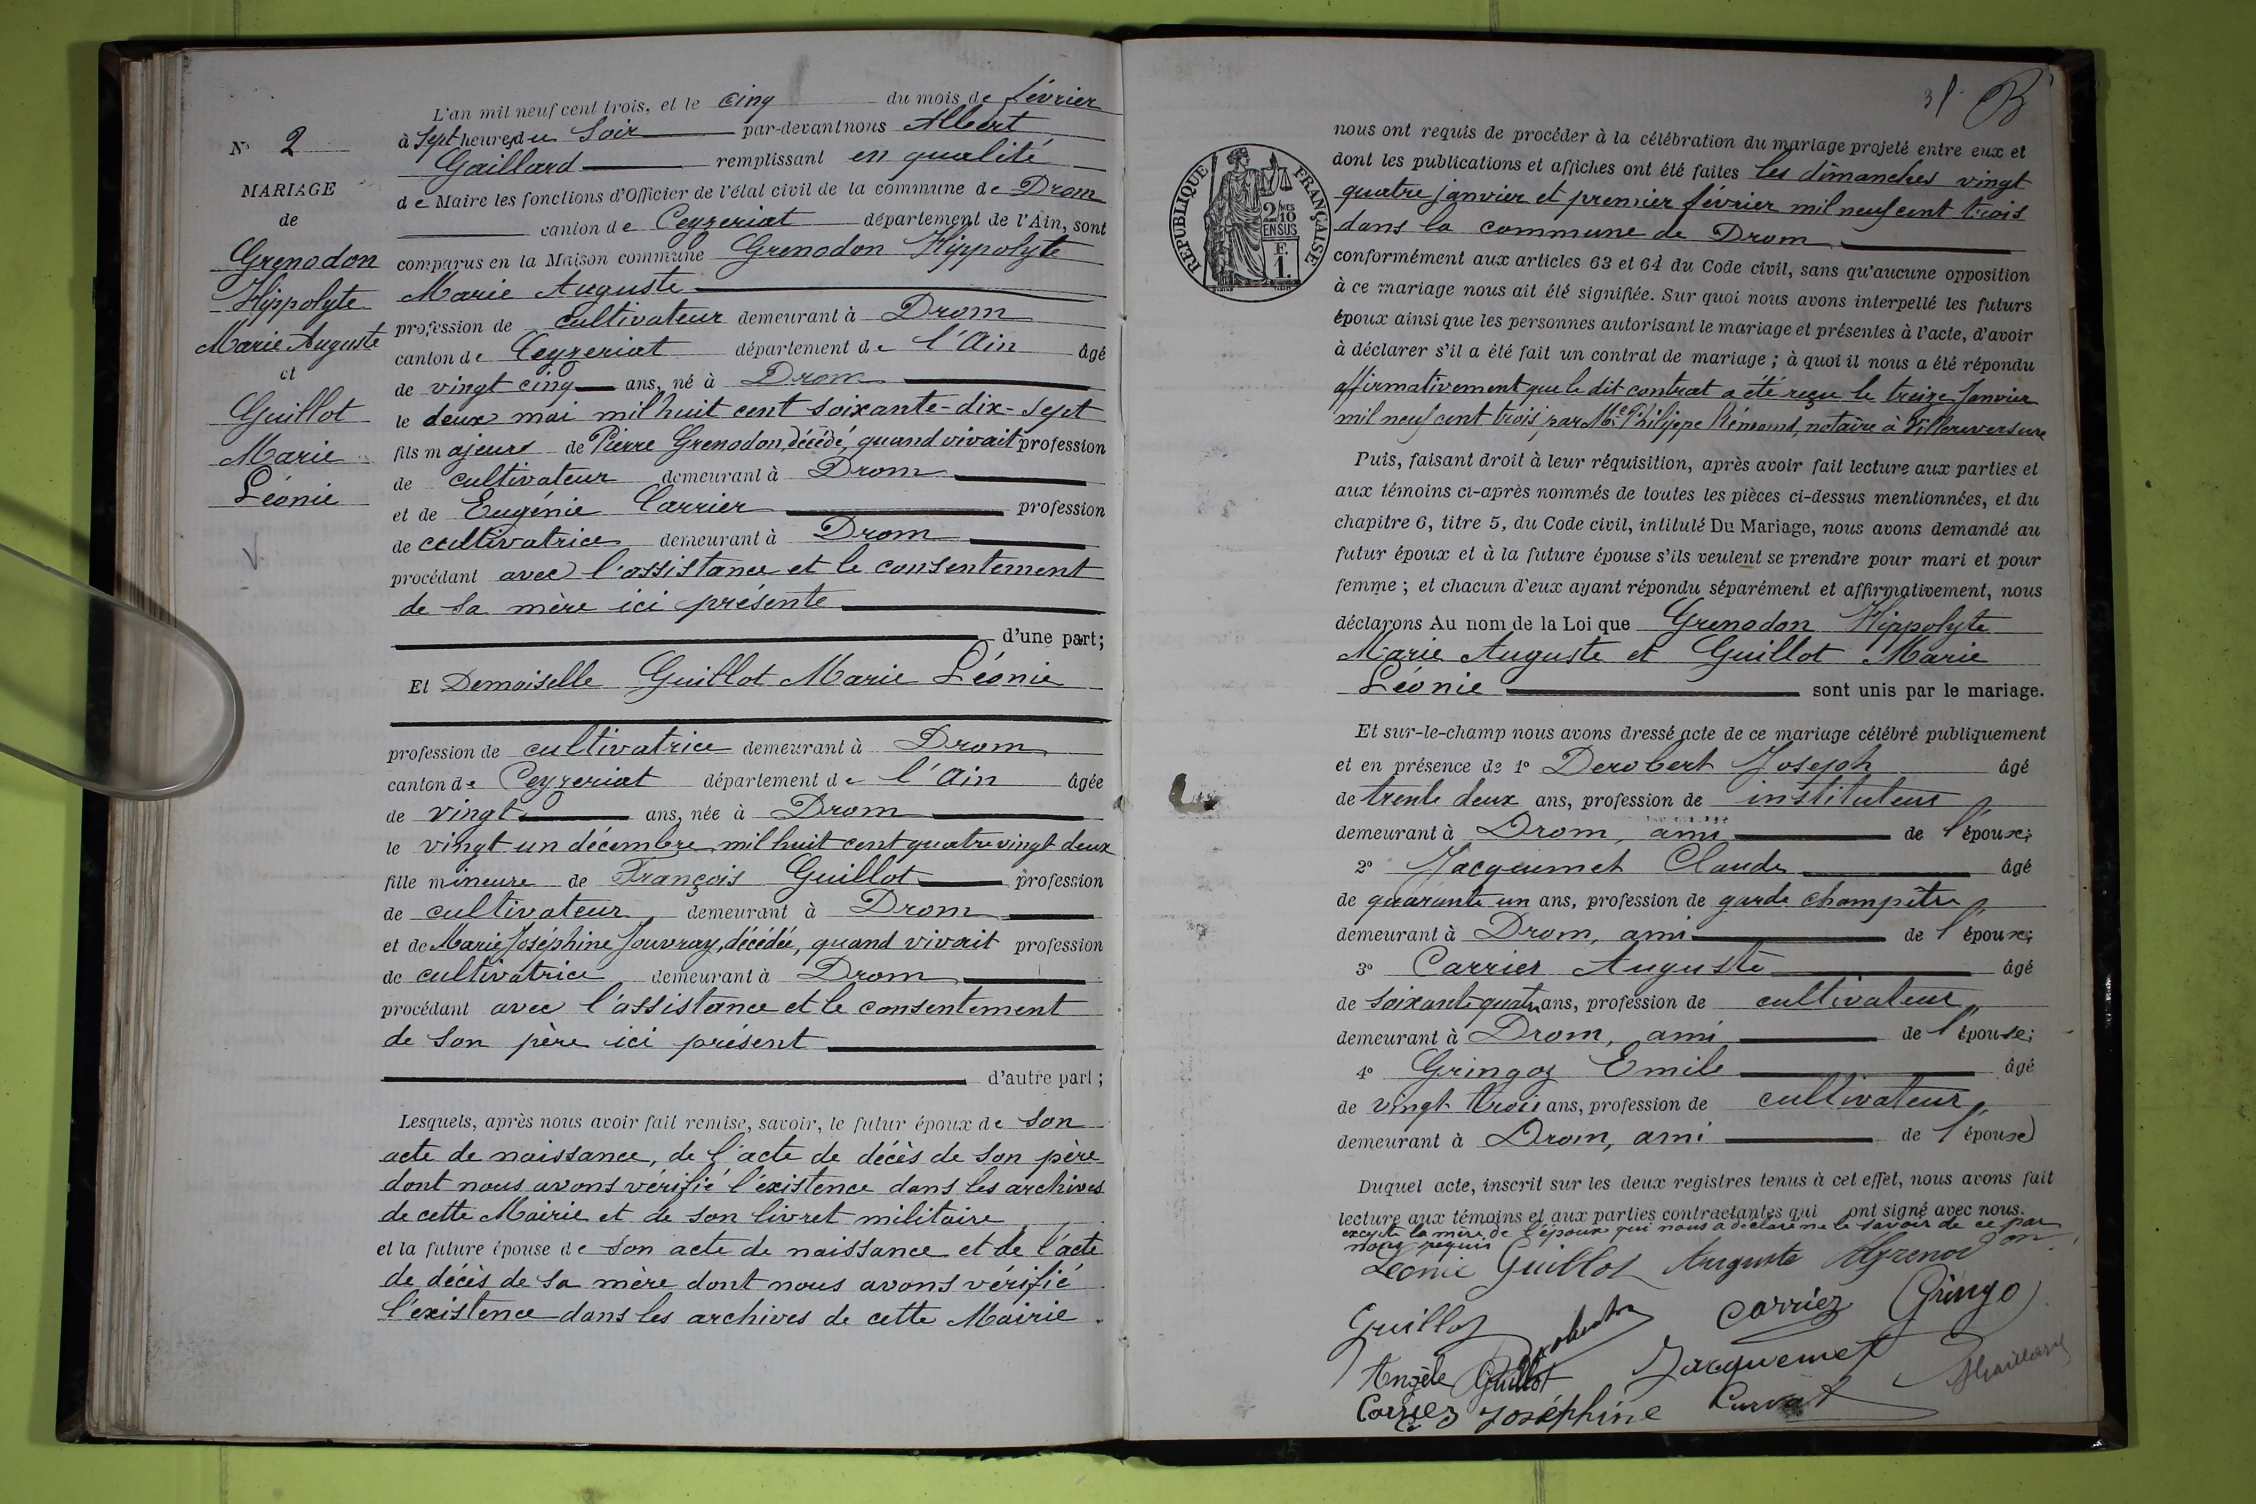 L'an mil neuf cent trois, et le cinq du mois de février
à sept heures du soir par-devant nous Albert
Gaillard remplissant en qualité
de Maire les fonctions d'Officier de l'état civil de la commune de Drom
canton de Ceyzeriat département de l'Ain, sont
comparus en la Maison commune Grenodon Hippolyte
Marie Auguste
profession de cultivateur demeurant à Drom
canton de Ceyzeriat département de l'Ain âgé
de vingt cinq ans, né à Drom
le deux mai mil huit cent soixante-dix-sept
fils majeur de Pierre Grenodon, décédé, quand vivait profession
de cultivateur demeurant à Drom
et de Eugénie Carrier profession
de cultivatrice demeurant à Drom
procédant avec l'assistance et le consentement
de sa mère ici présente
d'une part;
Et Demoiselle Guillot Marie Léonie
profession de cultivatrice demeurant à Drom
canton de Ceyzeriat département de l'Ain âgée
de vingt ans, née à Drom
le vingt un décembre mil huit cent quatre vingt deux
fille mineure de François Guillot profession
de cultivateur demeurant à Drom
et de Marie Joséphine Jouvray, décédée, quand vivait profession
de cultivatrice demeurant à Drom
procédant avec l'assistance et le consentement
de son père ici présent
d'autre part;
Lesquels, après nous avoir fait remise, savoir, le futur époux de son
acte de naissance, de l'acte de décès de son père
dont nous avons vérifié l'existence dans les archives
de cette Mairie et de son livret militaire
et la future épouse de son acte de naissance et de l'acte
de décès de sa mère dont nous avons vérifié
l'existence dans les archives de cette Mairie.
N° 2
MARIAGE
de
Grenodon
Hippolyte
Marie Auguste
et
Guillot
Marie
Léonie
3
RÉPUBLIQUE FRANÇAISE
2/10
EN SUS
F.
1.
nous ont requis de procéder à la célébration du mariage projeté entre eux et
dont les publications et affiches ont été faites les dimanches vingt
quatre janvier et premier février mil neuf cent trois
dans la commune de Drom
conformément aux articles 63 et 64 du Code civil, sans qu'aucune opposition
à ce mariage nous ait été signifiée. Sur quoi nous avons interpellé les futurs
époux ainsi que les personnes autorisant le mariage et présentes à l'acte, d'avoir
à déclarer s'il a été fait un contrat de mariage; à quoi il nous a été répondu
affirmativement que le dit contrat a été reçu le treize Janvier
mil neuf cent trois, par Me Philippe Rémond, notaire à Villereversure
Puis, faisant droit à leur réquisition, après avoir fait lecture aux parties et
aux témoins ci-après nommés de toutes les pièces ci-dessus mentionnées, et du
chapitre 6, titre 5, du Code civil, intitulé Du Mariage, nous avons demandé au
futur époux et à la future épouse s'ils veulent se prendre pour mari et pour
femme; et chacun d'eux ayant répondu séparément et affirmativement, nous
déclarons Au nom de la Loi que Grenodon Hippolyte
Marie Auguste et Guillot Marie
Léonie sont unis par le mariage.
Et sur-le-champ nous avons dressé acte de ce mariage célébré publiquement
et en présence de 1° Derobert Joseph âgé
de trente deux ans, profession de instituteur
demeurant à Drom, ami de l'époux;
2° Jacquemet Claude âgé
de quarante un ans, profession de garde champêtre
demeurant à Drom, ami de l'époux;
3° Carrier Auguste âgé
de soixante quatre ans, profession de cultivateur
demeurant à Drom, ami de l'épouse;
4° Gringoz Emile âgé
de vingt trois ans, profession de cultivateur
demeurant à Drom, ami de l'épouse
Duquel acte, inscrit sur les deux registres tenus à cet effet, nous avons fait
lecture aux témoins et aux parties contractantes qui ont signé avec nous.
excepté la mère de l'époux qui nous a déclaré ne le savoir de ce par
nous requis
Léonie Guillot Auguste Grenodon
Guillot Carrier Gringo
Angèle Guillot Jacquemet
Carrier Joséphine Curvat